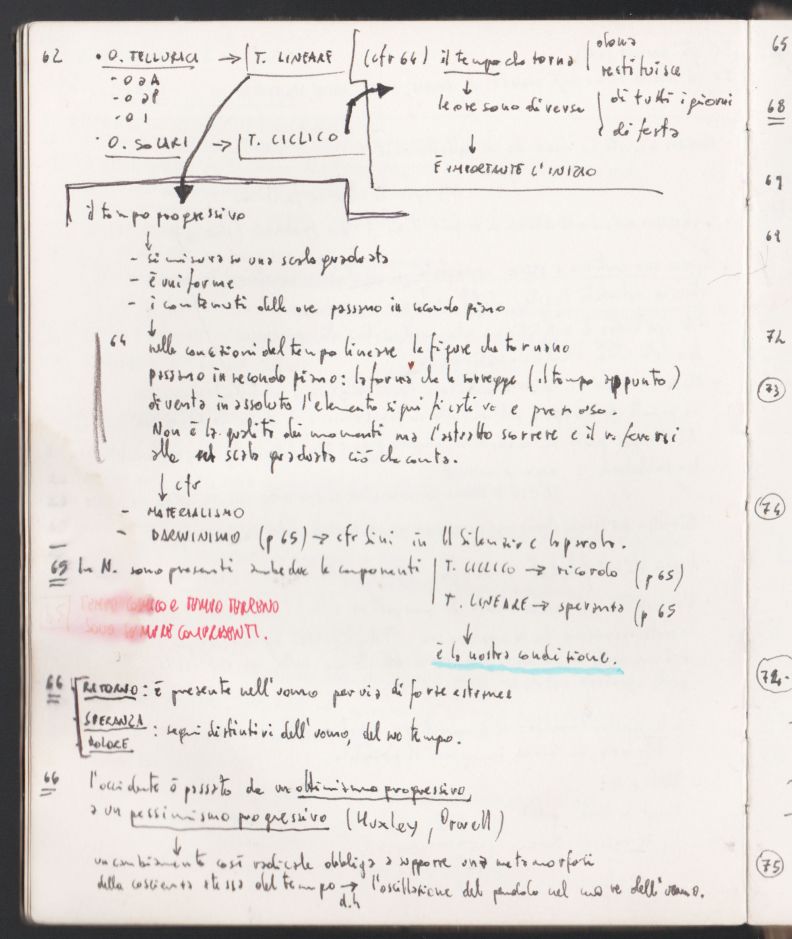 62 • O. TELLURICI → T. LINEARE (cfr 64) il tempo che torna dona
restituisce
- O a A
- O a P
- O I
le ore sono diverse di tutti i giorni
di festa
• O. SOLARI → T. CICLICO
È IMPORTANTE L'INIZIO
il tempo progressivo
- si misura su una scala graduata
- è uniforme
- i contenuti delle ore passano in secondo piano
64 nelle concezioni del tempo lineare le figure che tornano
passano in secondo piano: la forma che le sorregge (il tempo appunto)
diventa in assoluto l'elemento significativo e prezioso.
Non è la qualità dei momenti ma l'astratto scorrere e il riferirsi
alla scala graduata ciò che conta.
cfr
- MATERIALISMO
- DARWINISMO (p 65) → cfr Sini in Il Silenzio e la parola.
65 In N. sono presenti ambedue le componenti T. CICLICO → ricordo (p 65)
T. LINEARE → speranza (p 65
E TEMPO TERRENO
SEMPRE COMPRESENTI.
è la nostra condizione.
66 RITORNO: È presente nell'uomo per via di forze estranee
SPERANZA
DOLORE : segni distintivi dell'uomo, del suo tempo.
66 l'occidente è passato da un ottimismo progressivo,
a un pessimismo progressivo (Huxley, Orwell)
un cambiamento così radicale obbliga a supporre una metamorfosi
della coscienza stessa del tempo → l'oscillazione del pendolo nel cuore dell'uomo.
d.h
65
68
69
69
72
73
74
74.
75